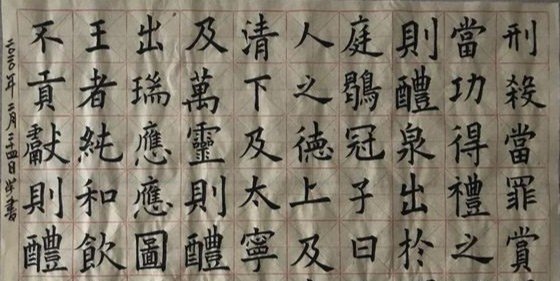 刑殺當罪賞
當功得禮之
則醴泉出於
庭鶡冠子曰
人之德上及
清下及太寧
及萬靈則醴
出瑞應應圖
王者純和飲
不貢獻則醴
年二月二十四日書